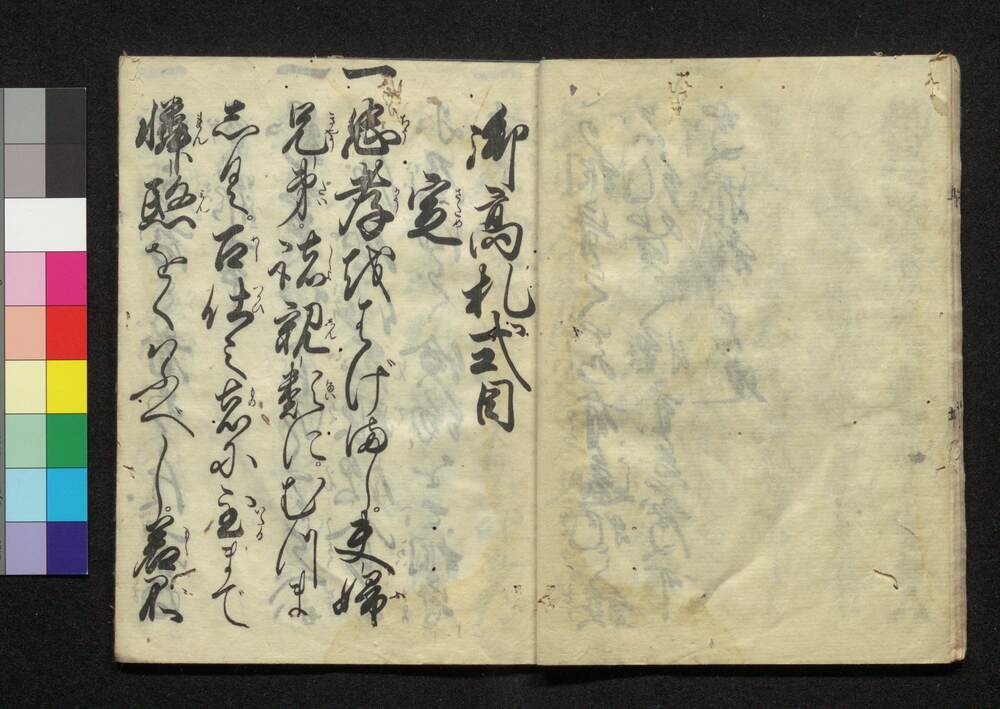 御高札式目
定
一忠孝をはげまし。夫婦
兄弟。諸親類に。むつま
しく。召仕之者に至まで
憐愍をくハふべし。若不